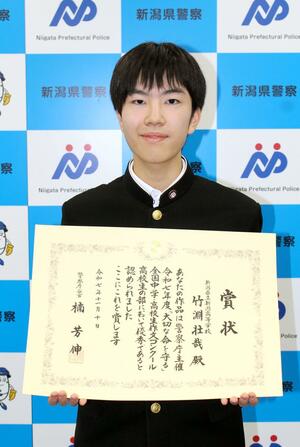 新潟県警察
Niigata Prefectural Police
新潟県警察
新潟県警察
Niigata Prefectural Police
Niigata Prefectural Police
賞状
竹淵壮哉殿
あなたの作品は警察庁主催
令和七年度「大切な命を守る」
全国中学・高校生作文コンクール
高校生の部において優秀であると
認められました
ここにこれを賞します
令和七年十一月十日
警察庁長官
楠芳伸